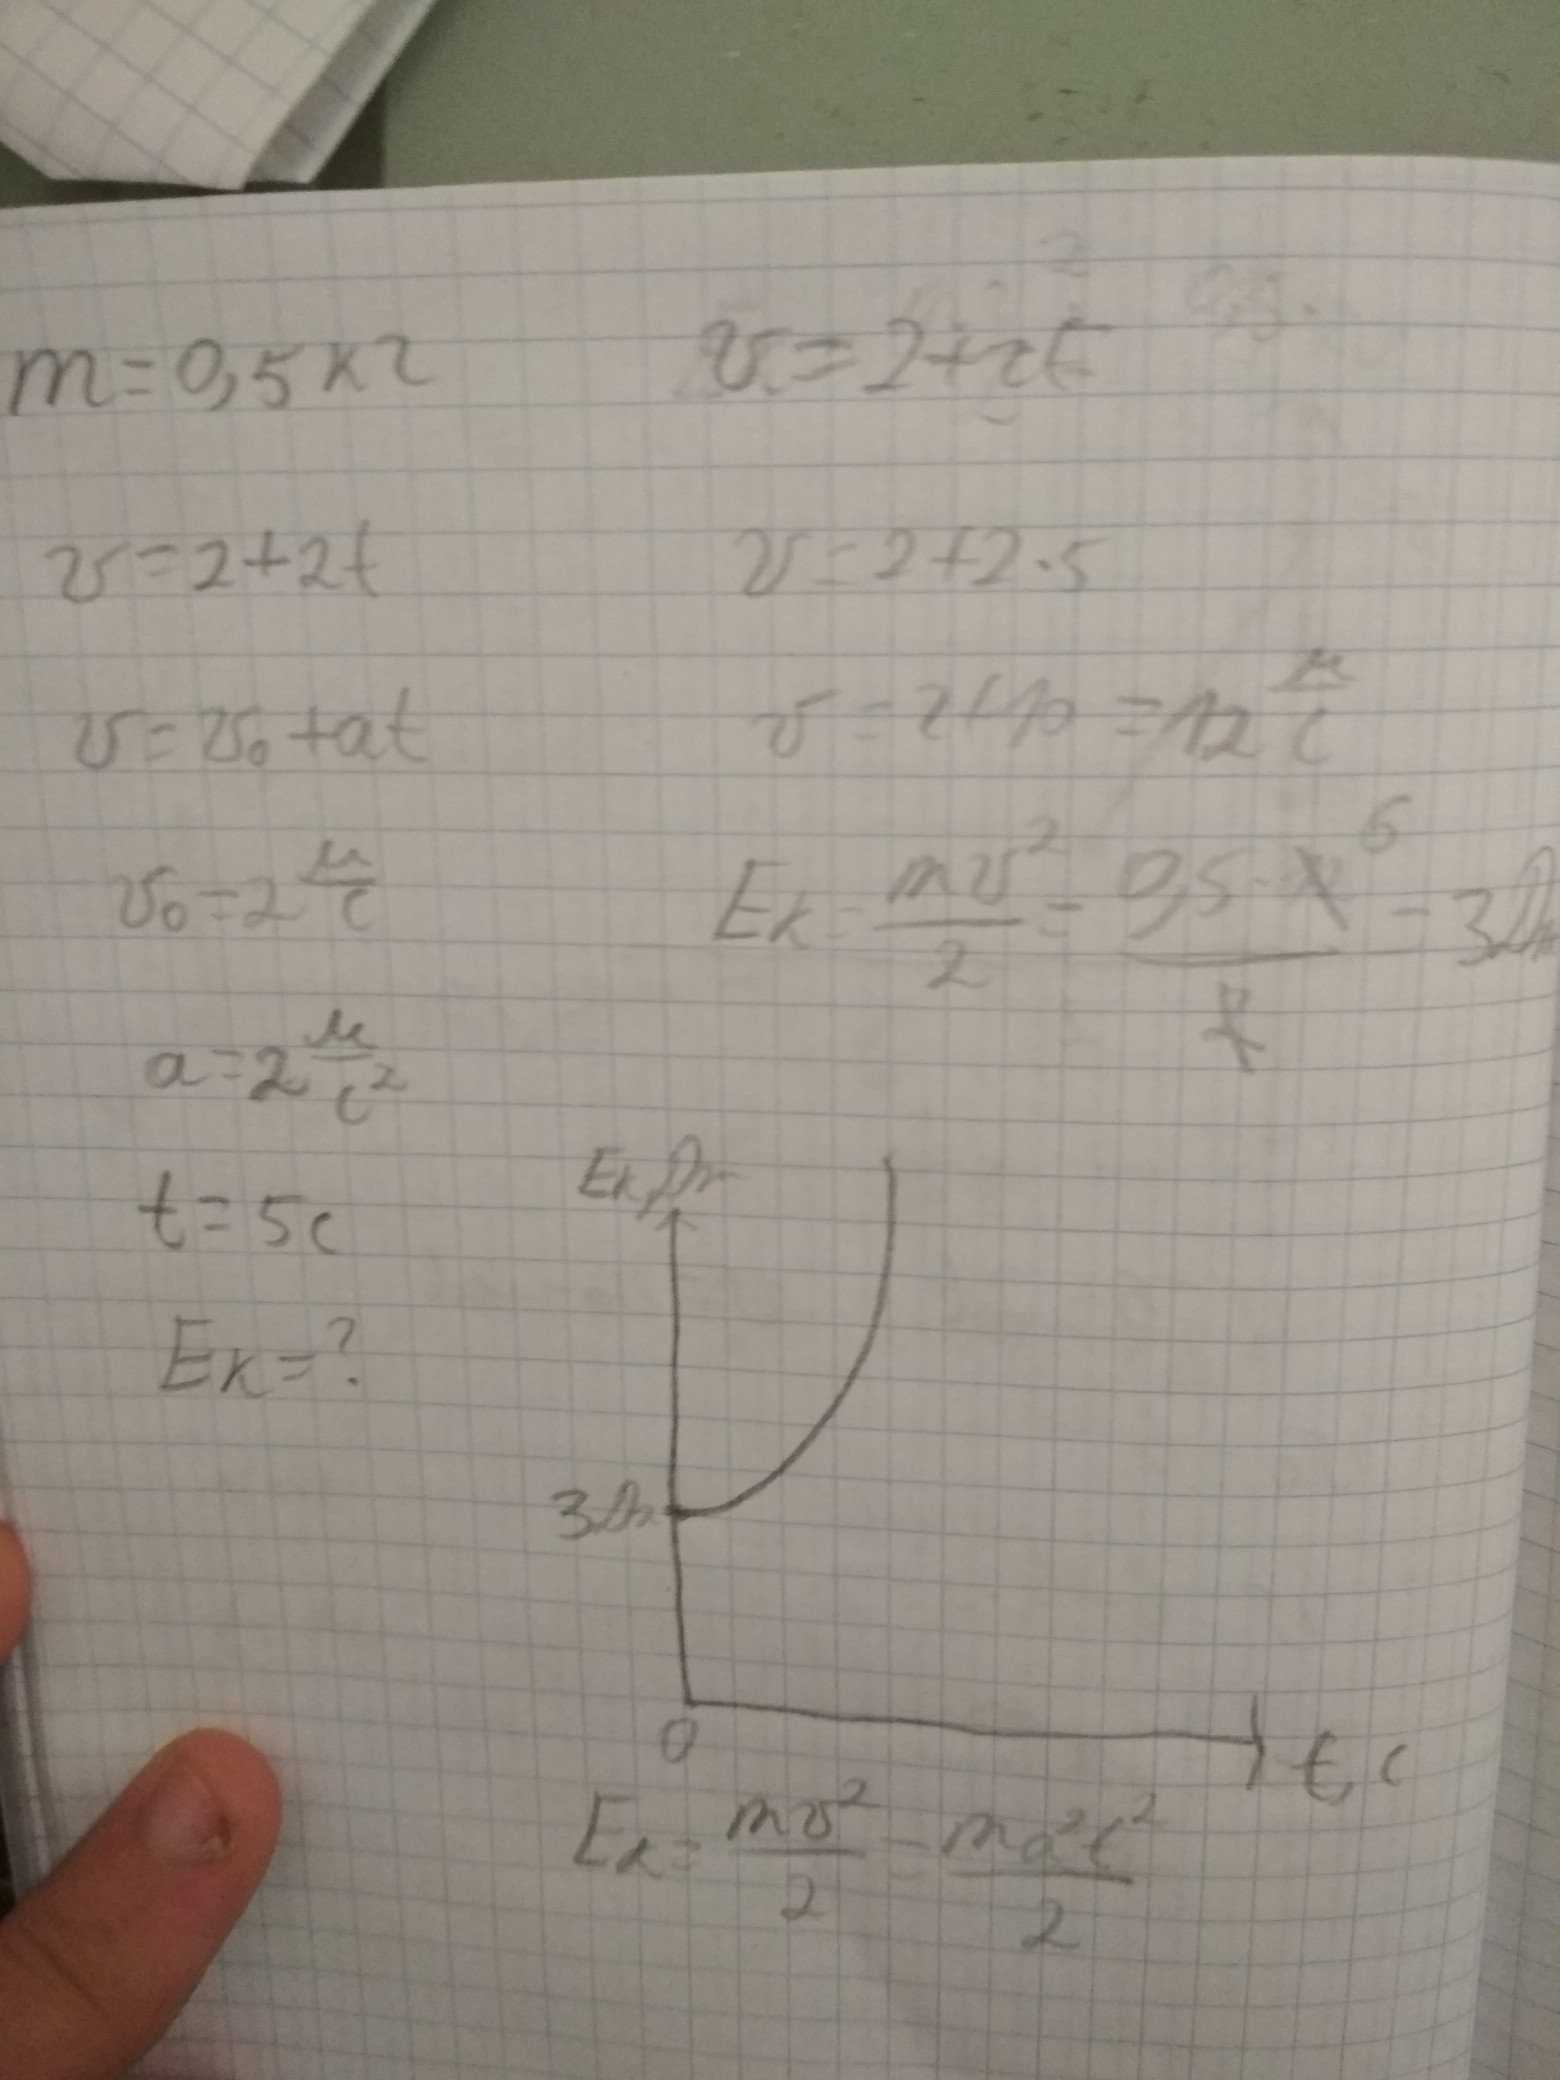 m=0,5кг
v=2+2t
v=v₀+at
v₀=2 м/с
a=2 м/с²
t=5c
Eк=?
v=2+2t
v=2+2·5
v=2+10=12 м/с
Eк=mv²/2=0,5· 6/2=3Дж
Eк,Дж
3Дж
0
t,c
Eк=mv²/2=ma²t²/2